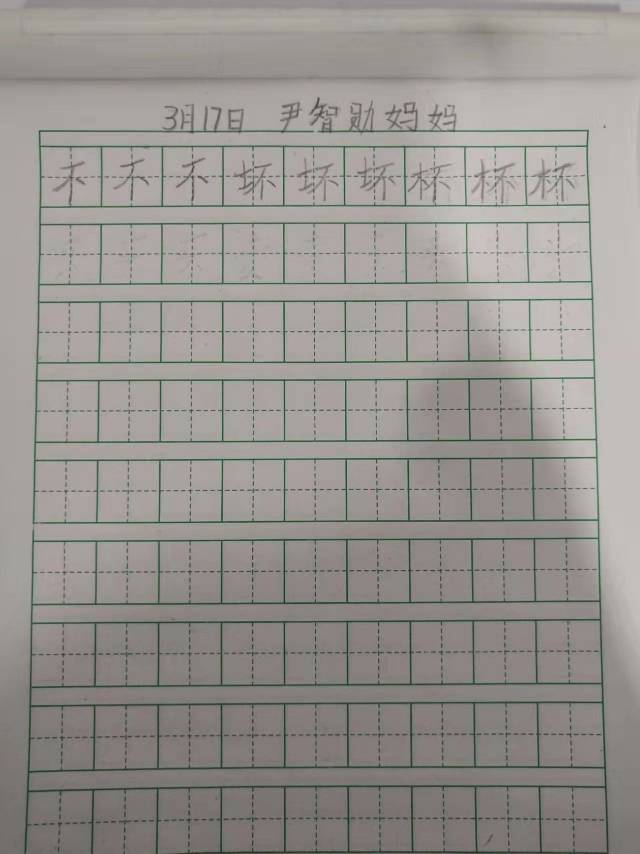 3月17日 尹智勋妈妈
不不不坏坏坏杯杯杯